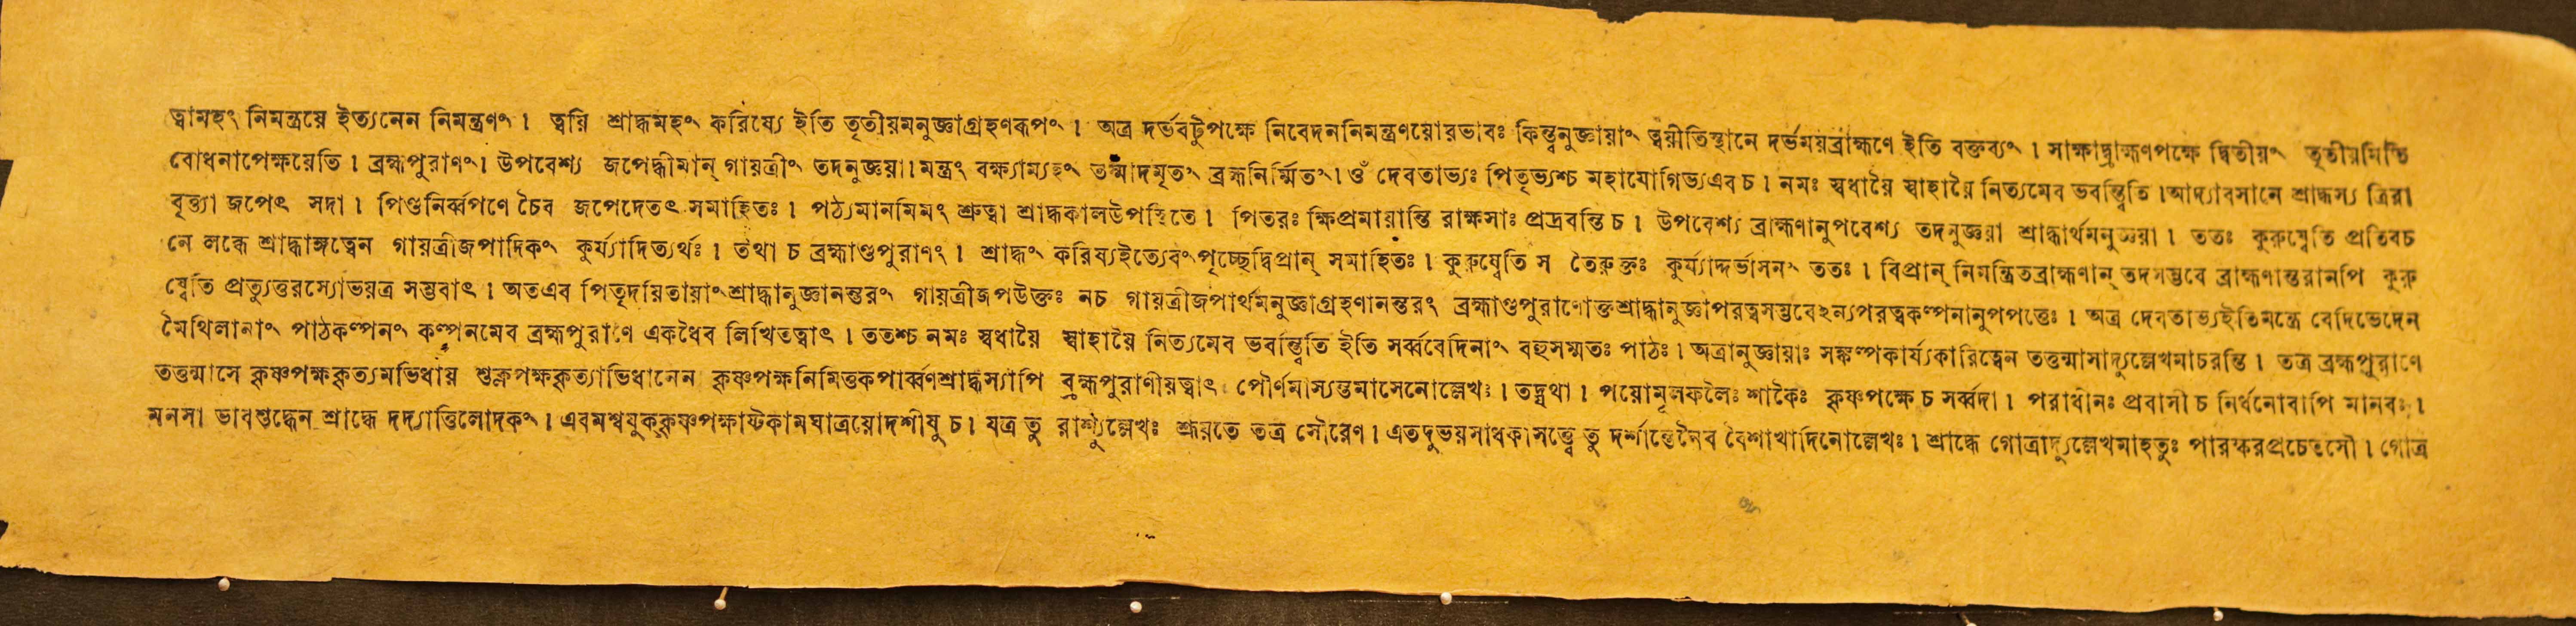 ত্বামহং নিমন্ত্রয়ে ইত্যনেন নিমন্ত্রণং। ত্বয়ি শ্রাদ্ধমহং করিষ্যে ইতি তৃতীয়মনুজ্ঞাগ্রহণরূপং। অত্র দর্ভবটুপক্ষে নিবেদননিমন্ত্রণয়োরভাবঃ কিন্ত্বনুজ্ঞায়াং ত্বয়ীতিস্থানে দর্ভময়ব্রাহ্মণে ইতি বক্তব্যং। সাক্ষাদ্ব্রাহ্মণপক্ষে দ্বিতীয়ং তৃতীয়মিতি
বোধনাপেক্ষয়েতি। ব্রহ্মপুরাণং। উপবেশ্য জপেদ্ধীমান্ গায়ত্রীং তদনুজ্ঞয়া। মন্ত্রং বক্ষ্যাম্যহং তস্মাদমৃতং ব্রহ্মনির্ম্মিতং। ওঁ দেবতাভ্যঃ পিতৃভ্যশ্চ মহাযোগিভ্যএব চ। নমঃ স্বধায়ৈ স্বাহায়ৈ নিত্যমেব ভবন্ত্বিতি। আদ্যাবসানে শ্রাদ্ধস্য ত্রিরা
বৃত্ত্যা জপেৎ সদা। পিণ্ডনির্ব্বপণে চৈব জপেদেতৎ সমাহিতঃ। পঠ্যমানমিমং শ্রুত্বা শ্রাদ্ধকালউপস্থিতে। পিতরঃ ক্ষিপ্রমায়ান্তি রাক্ষসাঃ প্রদ্রবন্তি চ। উপবেশ্য ব্রাহ্মণানুপবেশ্য তদনুজ্ঞয়া শ্রাদ্ধার্থমনুজ্ঞয়া। ততঃ কুরুষ্বেতি প্রতিবচ
নে লব্ধে শ্রাদ্ধাঙ্গত্বেন গায়ত্রীজপাদিকং কুর্য্যাদিত্যর্থঃ। তথা চ ব্রহ্মাণ্ডপুরাণং। শ্রাদ্ধং করিষ্যইত্যেবং পৃচ্ছেদ্বিপ্রান্ সমাহিতঃ। কুরুষ্বেতি স তৈরুক্তঃ কুর্য্যাদ্দর্ভাসনং ততঃ। বিপ্রান্ নিমন্ত্রিতব্রাহ্মণান্ তদসম্ভবে ব্রাহ্মণান্তরানপি কুরু
ষ্বেতি প্রত্যুত্তরস্যোভয়ত্র সম্ভবাৎ। অতএব পিতৃদয়িতায়াং শ্রাদ্ধানুজ্ঞানন্তরং গায়ত্রীজপউক্তঃ নচ গায়ত্রীজপার্থমনুজ্ঞাগ্রহণানন্তরং ব্রহ্মাণ্ডপুরাণোক্তশ্রাদ্ধানুজ্ঞাপরত্বসম্ভবেঽন্যপরত্বকল্পনানুপপত্তেঃ। অত্র দেবতাভ্যইতিমন্ত্রে বেদিভেদেন
মৈথিলানাং পাঠকল্পনং কল্পনমেব ব্রহ্মপুরাণে একধৈব লিখিতত্বাৎ। ততশ্চ নমঃ স্বধায়ৈ স্বাহায়ৈ নিত্যমেব ভবন্ত্বিতি ইতি সর্ব্ববেদিনাং বহুসম্মতঃ পাঠঃ। অত্রানুজ্ঞায়াঃ সঙ্কল্পকার্য্যকারিত্বেন তত্তন্মাসাদ্যুল্লেখমাচরন্তি। তত্র ব্রহ্মপুরাণে
তত্তন্মাসে কৃষ্ণপক্ষকৃত্যমভিধায় শুক্লপক্ষকৃত্যাভিধানেন কৃষ্ণপক্ষনিমিত্তকপার্ব্বণশ্রাদ্ধস্যাপি ব্রহ্মপুরাণীয়ত্বাৎ পৌর্ণমাস্যন্তমাসেনোল্লেখঃ। তদ্যথা। পয়োমূলফলৈঃ শাকৈঃ কৃষ্ণপক্ষে চ সর্ব্বদা। পরাধীনঃ প্রবাসী চ নির্ধনোবাপি মানবঃ।
মনসা ভাবশুদ্ধেন শ্রাদ্ধে দদ্যাত্তিলোদকং। এবমশ্বযুক্কৃষ্ণপক্ষাষ্টকামঘাত্রয়োদশীষু চ। যত্র তু রাশ্যুল্লেখঃ শ্রূয়তে তত্র সৌরেণ। এতদুভয়সাধকাসত্ত্বে তু দর্শান্তেনৈব বৈশাখাদিনোল্লেখঃ। শ্রাদ্ধে গোত্রাদ্যুল্লেখমাহতুঃ পারস্করপ্রচেতসৌ। গোত্র